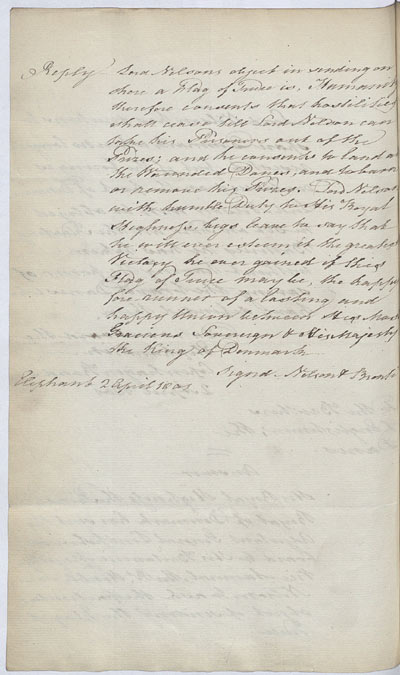 Reply Lord Nelsons object in sending on
shore a Flag of Truce is, Humanity
therefore consents that hostilities
shall cease till Lord Nelson can
take his Prisoners out of the
Prizes; and he consents to land all
the Wounded Danes, and to burn
or remove his Prizes. Lord Nelson
with humble Duty to His Royal
Highness begs leave to say that
he will ever esteem it the greatest
Victory he ever gained if this
Flag of Truce may be, the happy
fore runner of a lasting and
happy Union between His Most
Gracious Sovereign & His Majesty
the King of Denmark
Signd. Nelson & Bronte
Elephant 2 April 1801